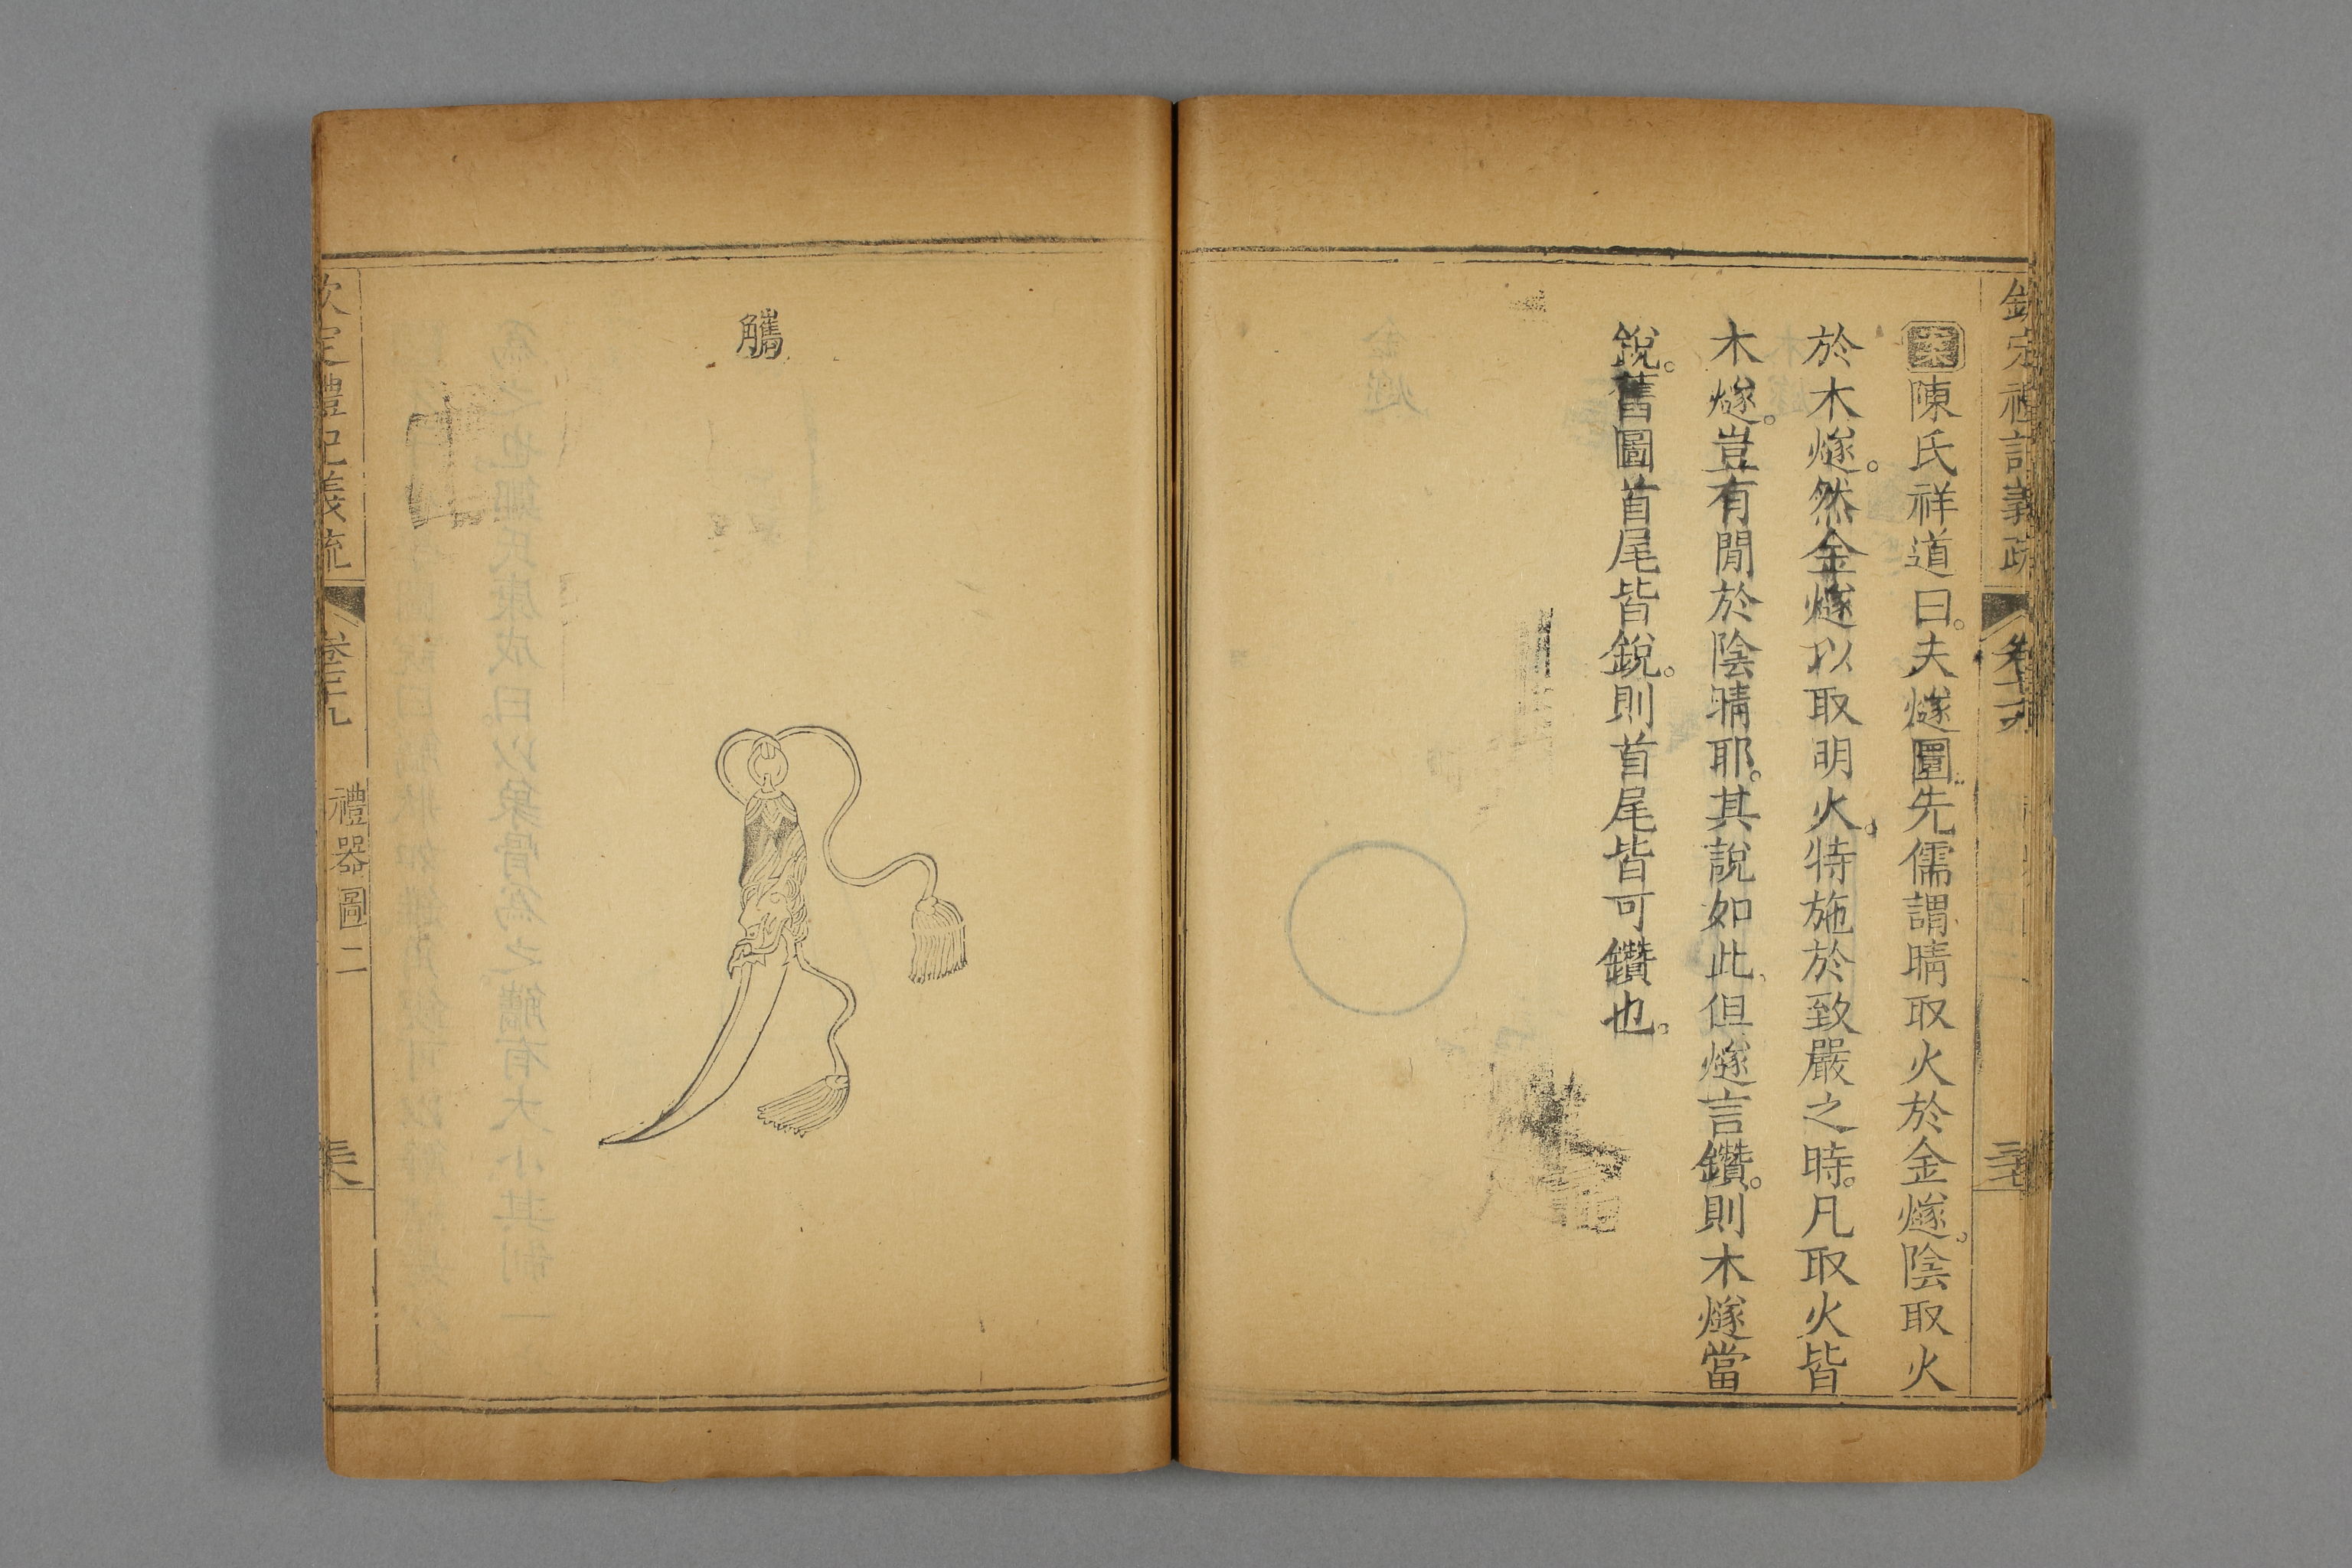 欽定禮記義疏
案陳氏祥道曰夫燧圓先儒謂晴取火於金燧陰取火
於木燧然金燧以取明火特施於致嚴之時凡取火皆
木燧豈有間於陰晴耶其說如此但燧言鑽則木燧當
銳舊圖首尾皆銳則首尾皆可鑽也
觿
欽定禮記義疏
禮器圖二